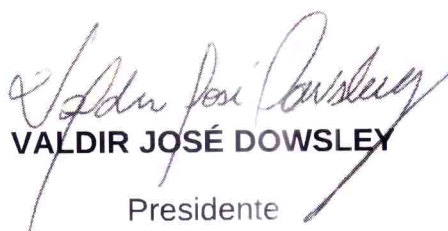 Valdir José Dowsley
VALDIR JOSÉ DOWSLEY
Presidente